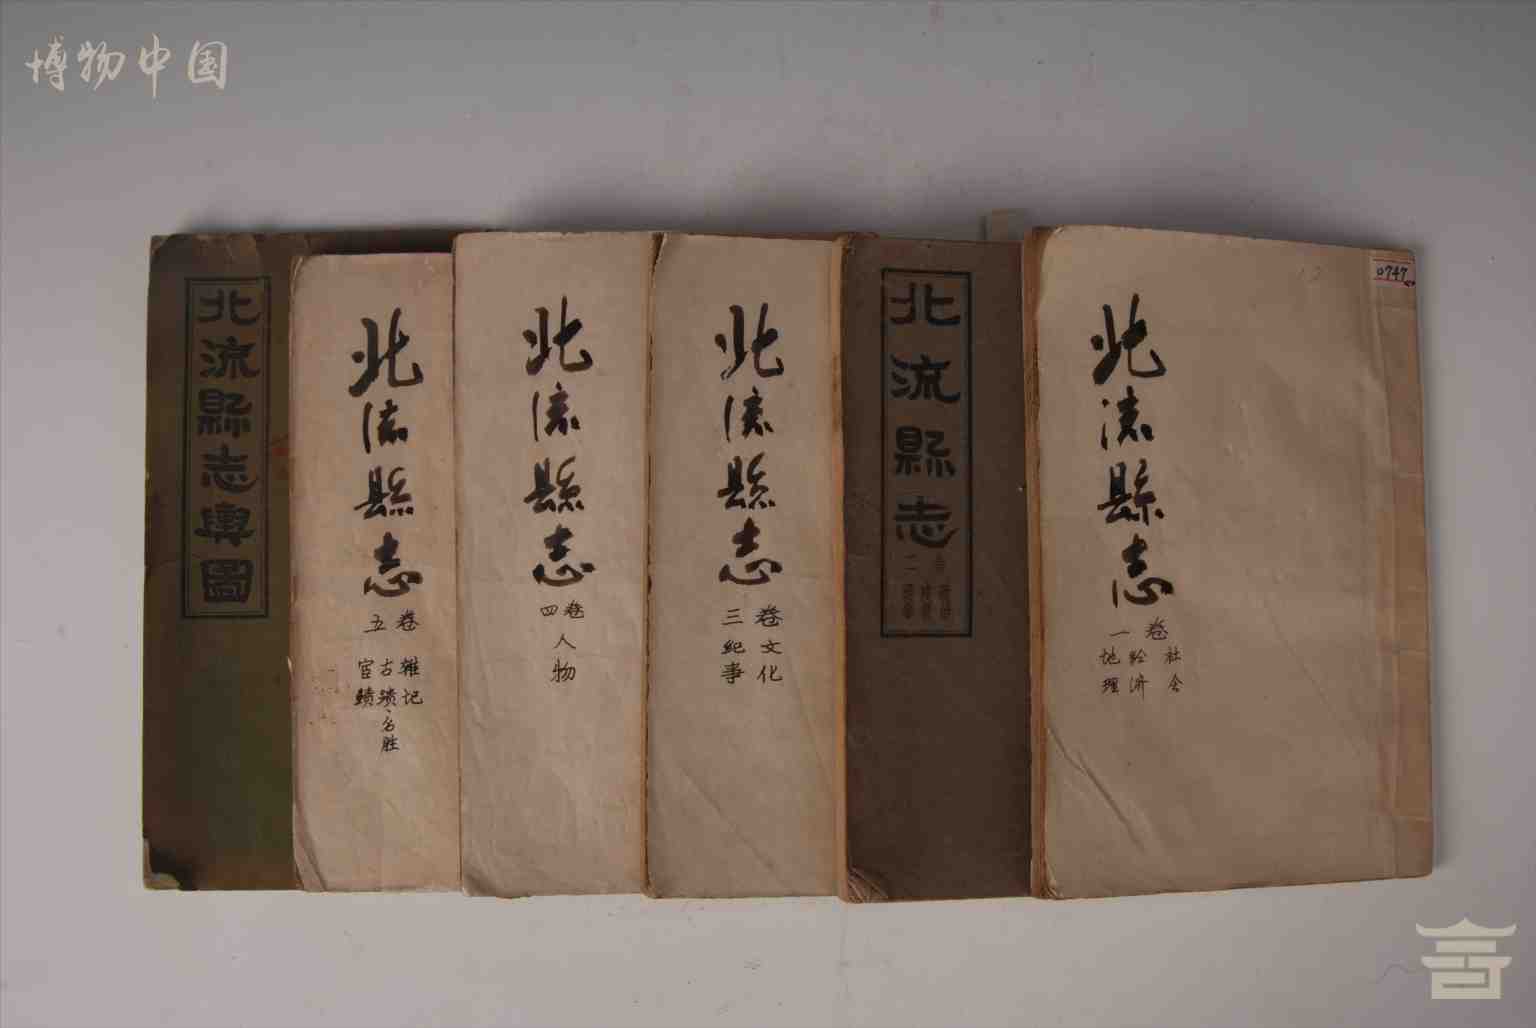 博物中国
北流縣志
卷一
社会
经济
地理
0747
北流縣志
二
北流縣志
卷三
文化
紀事
北流縣志
卷四
人物
北流縣志
卷五
雜记
古蹟、名胜
宦蹟
北流縣志輿圖